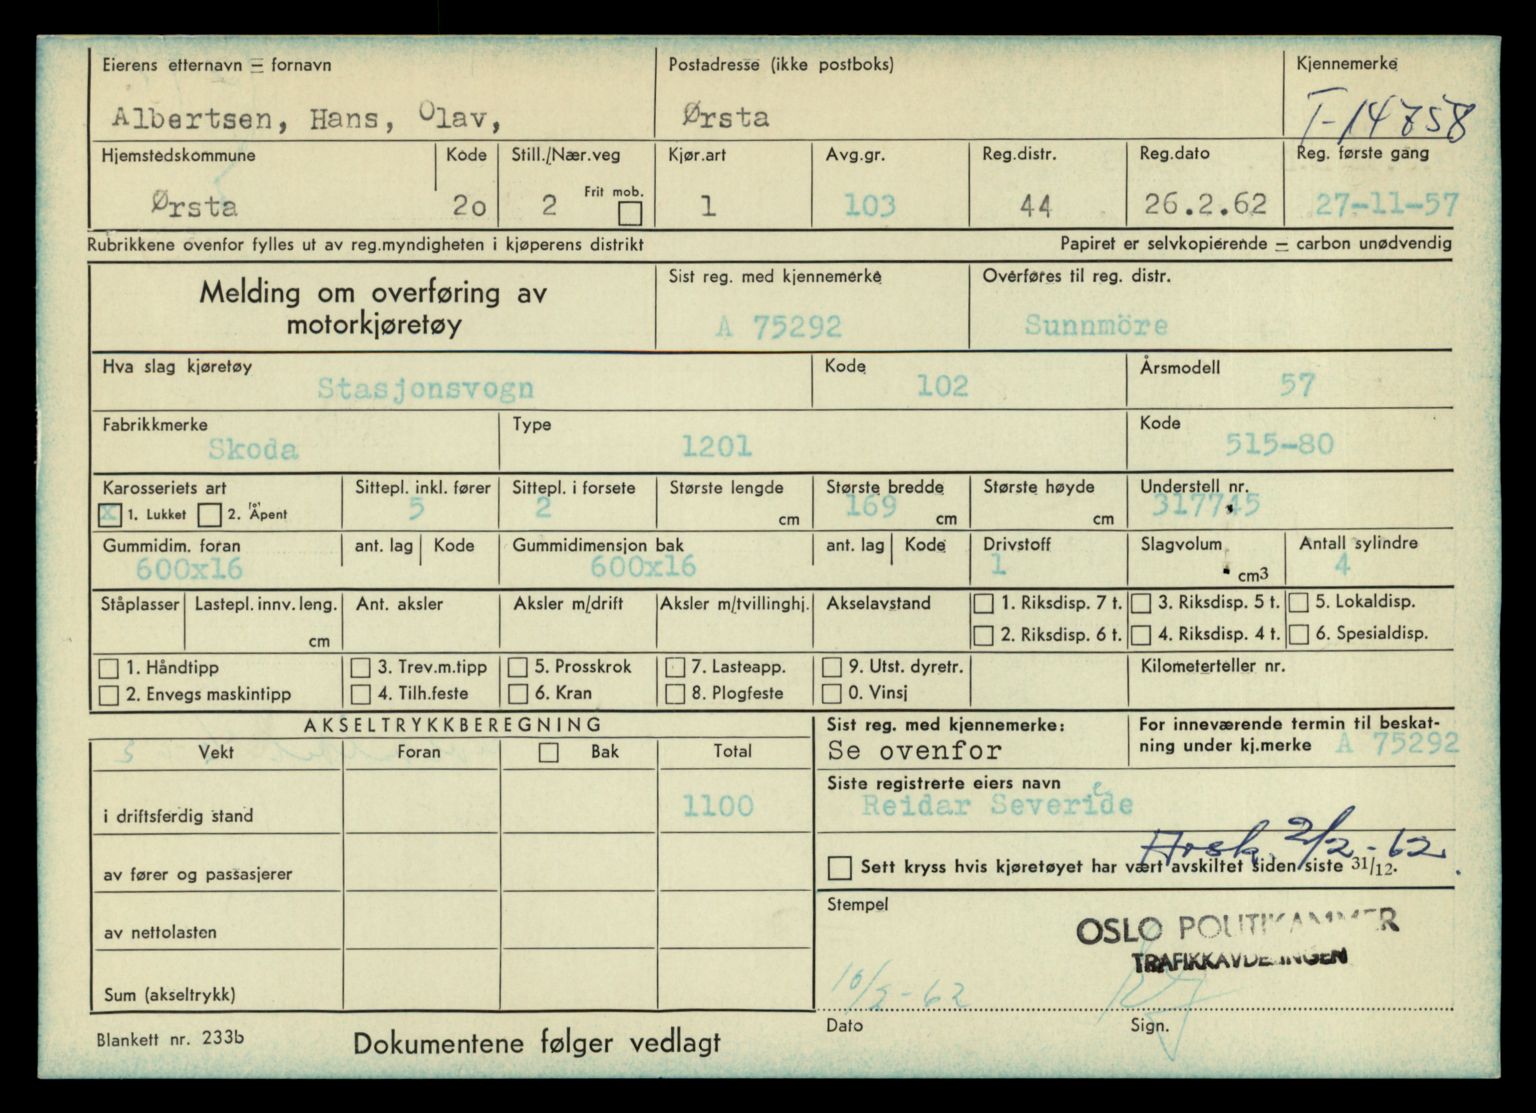 Eierens etternavn — fornavn Postadresse (ikke postboks) Kjennemerke
Albertsen, Hans, Olav, Ørsta T-14758
Hjemstedskommune Kode Still./Nær.veg Kjør.art Avg.gr. Reg.distr. Reg.dato Reg. første gang
Ørsta 2o 2 Frit mob. 1 103 44 26.2.62 27-11-57
Rubrikkene ovenfor fylles ut av reg.myndigheten i kjøperens distrikt Papiret er selvkopierende — carbon unødvendig
Melding om overføring av motorkjøretøy
Sist reg. med kjennemerke Overføres til reg. distr.
A 75292 Sunnmöre
Hva slag kjøretøy Kode Årsmodell
Stasjonsvogn 102 57
Fabrikkmerke Type Kode
Skoda 1201 515-80
Karosseriets art Sittepl. inkl. fører Sittepl. i forsete Største lengde Største bredde Største høyde Understell nr.
x 1. Lukket 2. Åpent 5 2 cm 169 cm cm 317745
Gummidim. foran ant. lag Kode Gummidimensjon bak ant. lag Kode Drivstoff Slagvolum Antall sylindre
600x16 600x16 1 cm3 4
Ståplasser Lastepl. innv. leng. Ant. aksler Aksler m/drift Aksler m/tvillinghj. Akselavstand 1. Riksdisp. 7 t. 3. Riksdisp. 5 t. 5. Lokaldisp.
cm 2. Riksdisp. 6 t. 4. Riksdisp. 4 t. 6. Spesialdisp.
1. Håndtipp 3. Trev.m.tipp 5. Prosskrok 7. Lasteapp. 9. Utst. dyretr. Kilometerteller nr.
2. Envegs maskintipp 4. Tilh.feste 6. Kran 8. Plogfeste 0. Vinsj
AKSELTRYKKBEREGNING
Vekt Foran Bak Total
i driftsferdig stand 1100
av fører og passasjerer
av nettolasten
Sum (akseltrykk)
Sist reg. med kjennemerke:
Se ovenfor
For inneværende termin til beskat-
ning under kj.merke A 75292
Siste registrerte eiers navn
Reidar Severide
Avsk. 2/2-62
Sett kryss hvis kjøretøyet har vært avskiltet siden siste 31/12.
Stempel
OSLO POLITIKAMMER
TRAFIKKAVDELINGEN
10/2-62
Dato Sign.
Blankett nr. 233b Dokumentene følger vedlagt